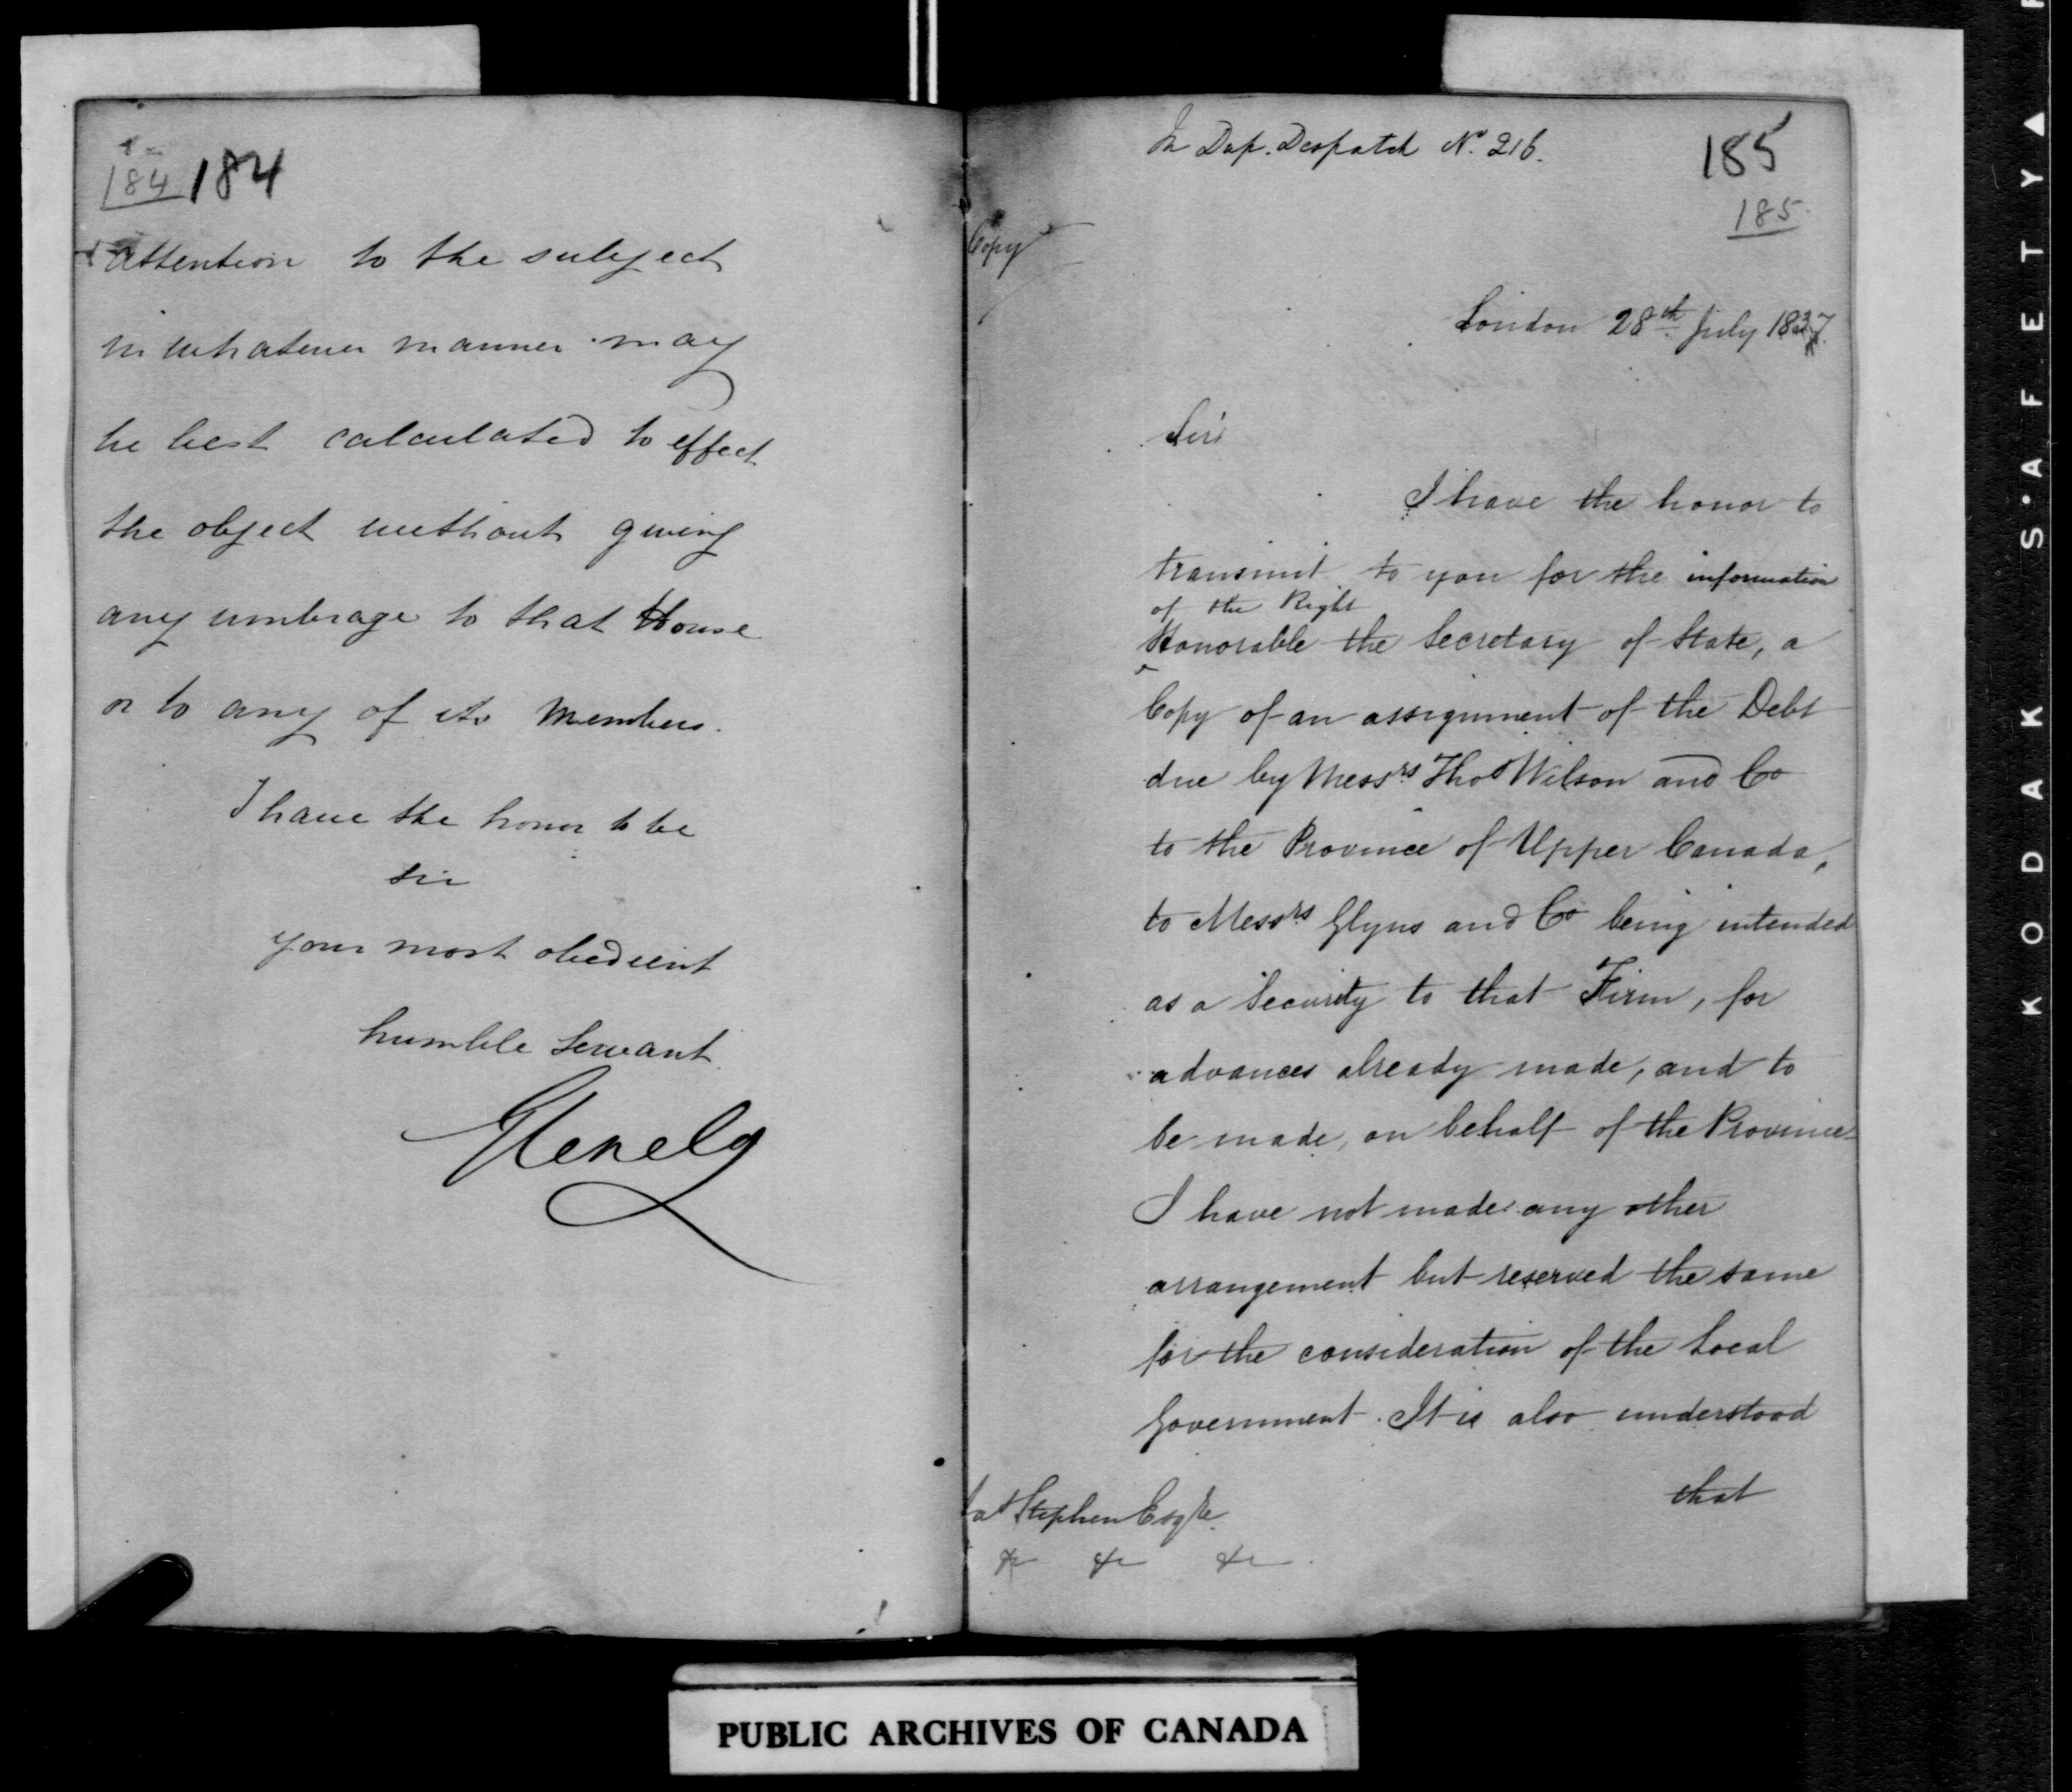 184 184
attention to the subject
in whatever manner may
be best calculated to effect
the object without giving
any umbrage to that House
or to any of its Members.
I have the honor to be
Sir
your most obedient
humble Servant
Glenelg
In Dup. Despatch No. 216.
185
185.
Copy
London 28th July 1837.
Sir
I have the honor to
transmit to you for the information
of the Right
Honorable the Secretary of State, a
Copy of an assignment of the Debt
due by Messrs Thos Wilson and Co
to the Province of Upper Canada,
to Messrs Glyns and Co being intended
as a Security to that Firm, for
advances already made, and to
be made, on behalf of the Province
I have not made any other
arrangement but reserved the same
for the consideration of the Local
Government. It is also understood
that
Jas Stephen Esqre
&c &c &c
PUBLIC ARCHIVES OF CANADA
KODAK S'AFETY